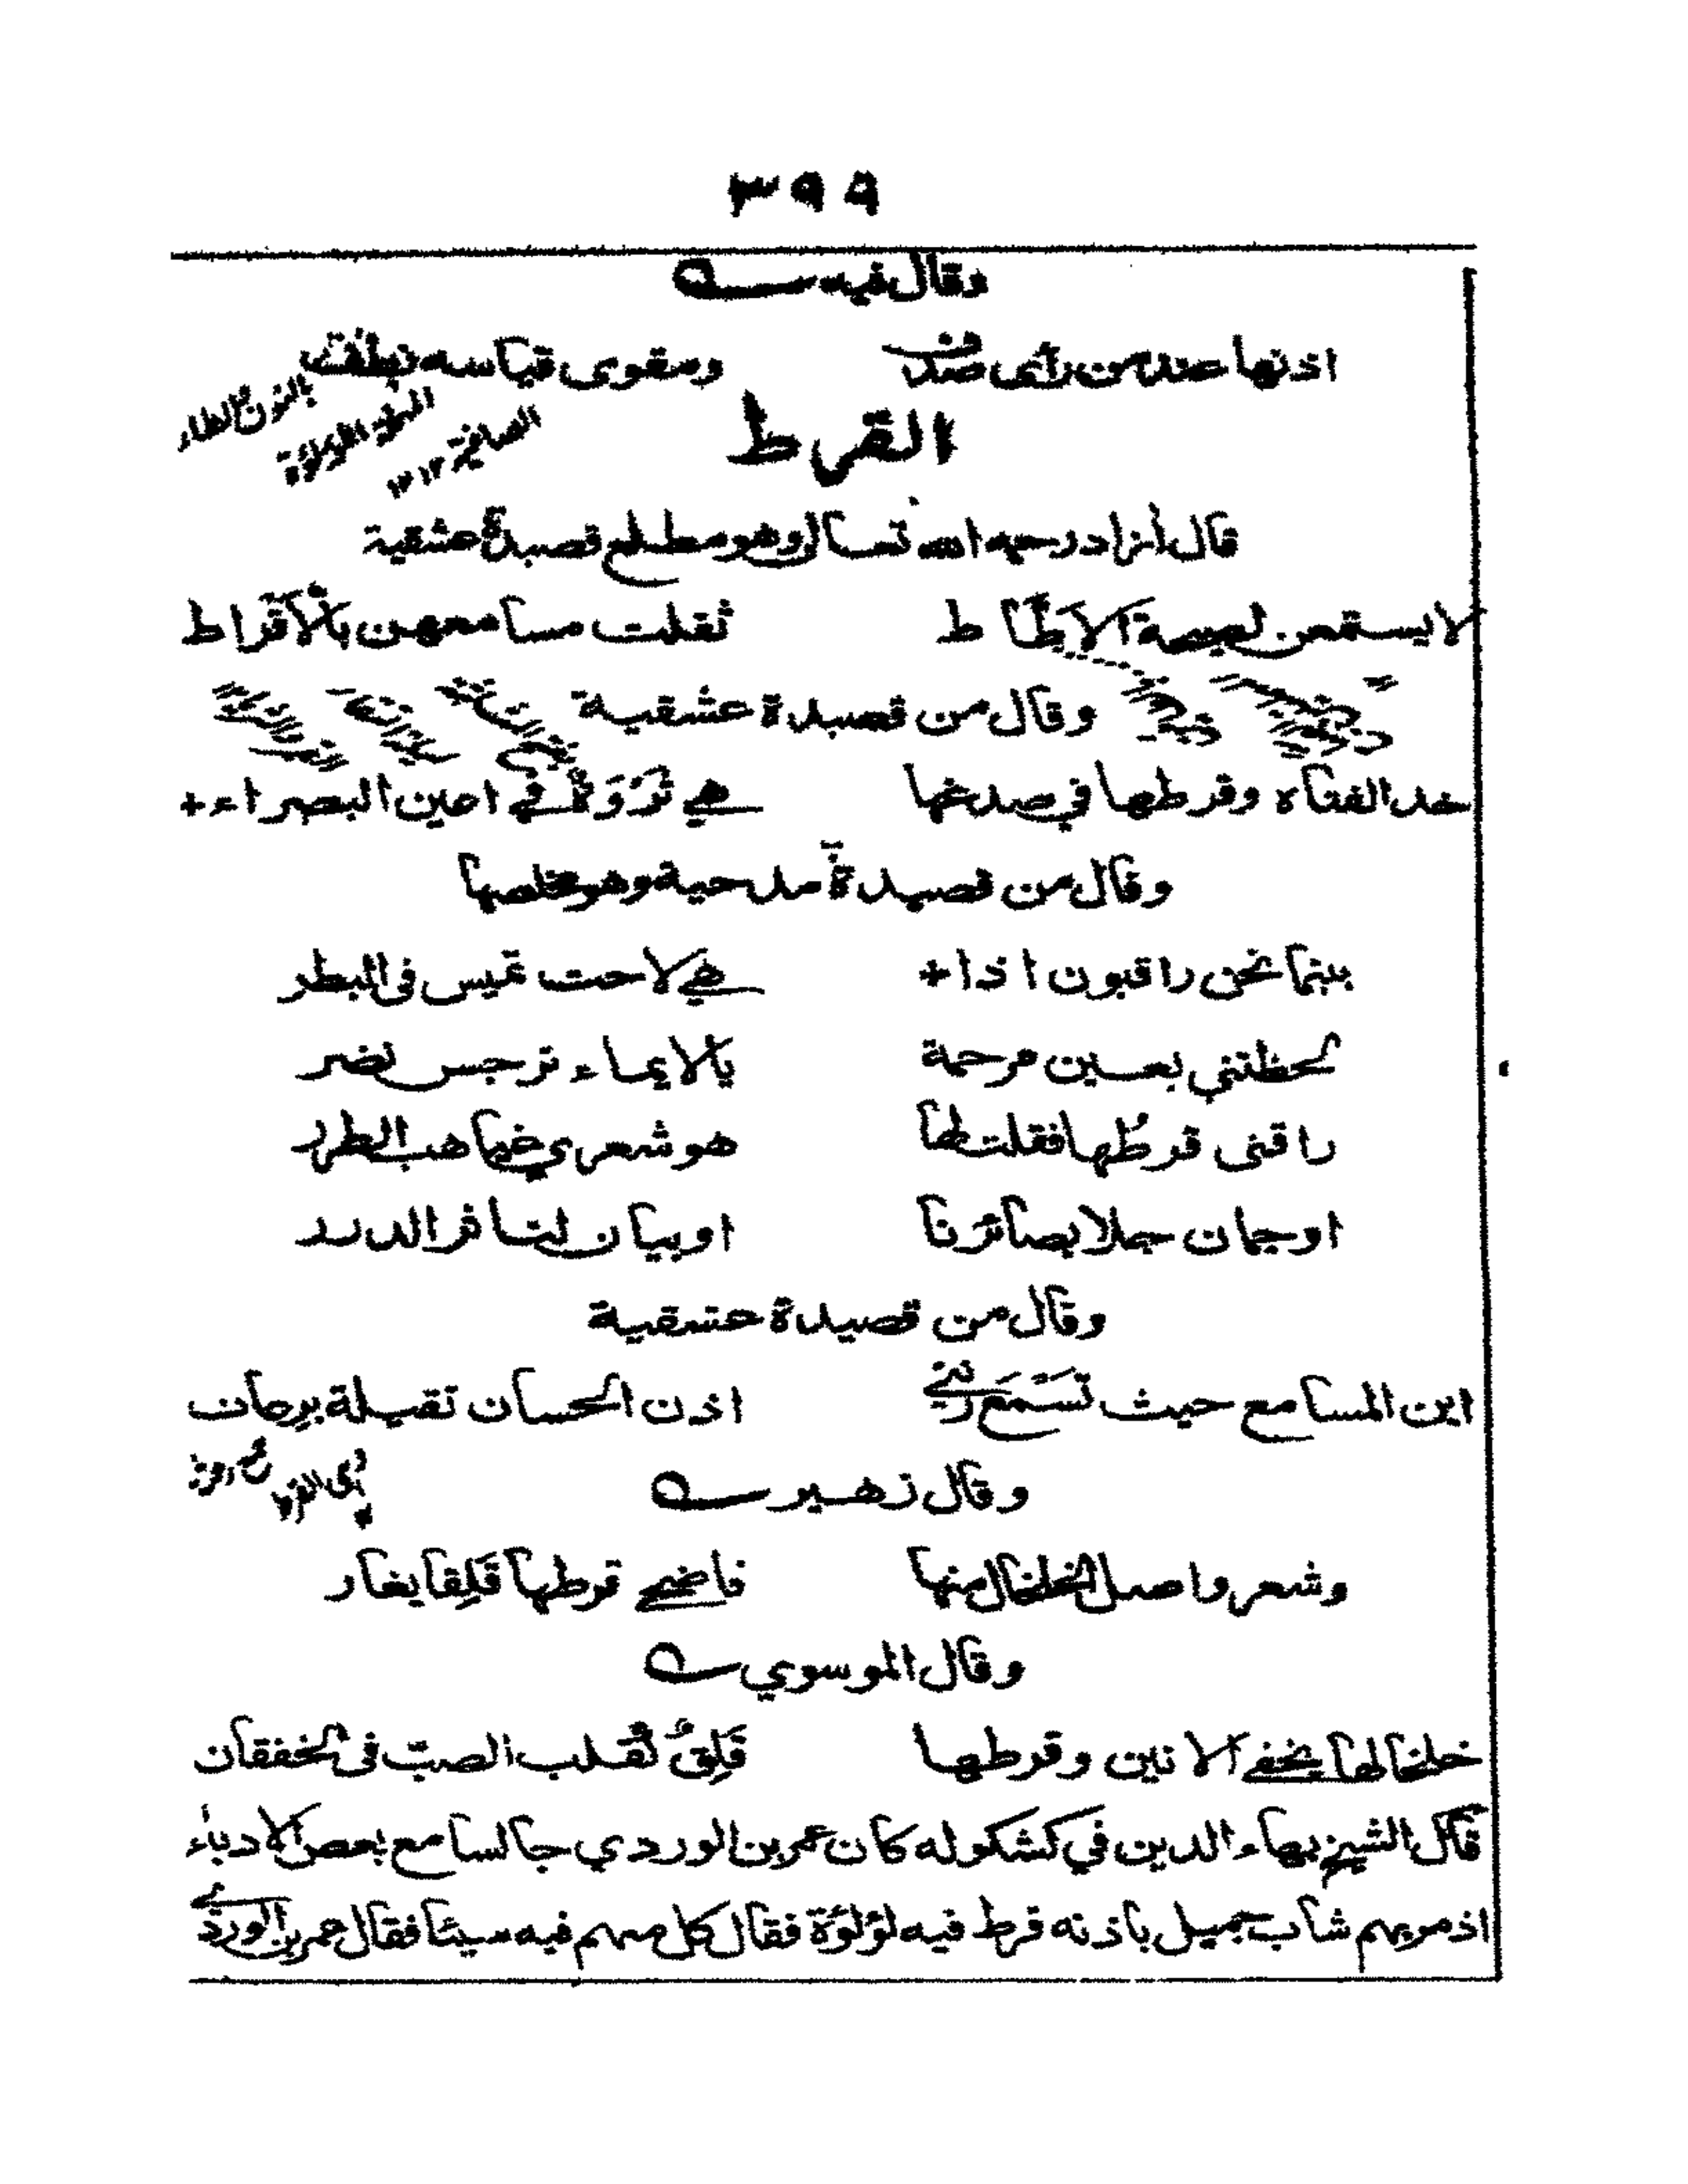 ٣٩٩
وقال فيه
اذنها عند من رأى صدف ومقوى قياسه نطفت
بالنون والطاء
المهملة اللؤلؤة
الصافية ١٢
القرط
قال أزاد رحمه الله تعالى وهو مطلع قصيدة عشقية
لا يستمعن لصيحة الاطّاط ثقلت مسامعهن بالأقراط
وقال من قصيدة عشقية
خد الفتاه وقرطها في صدغها هي ثروة في اعين البصراء
وقال من قصيدة مدحية وهو مخلصها
بينما نحن راقبون اذا هي لاحت تميس في البطر
لحظتني بعين مرحمة يالايماء نرجس نضر
راقني قرطها فقلت لها هو شعري ضياهب الطرر
او جمان جلا بصائرنا او بيان لتافر الدرر
وقال من قصيدة عشقية
اين المسامع حيث تستمع رنتي اذن الحسان ثقيلة برعاث
وقال زهير
وشعر واصل الخلخال منها فاضحى قرطها قلقا يغار
وقال الموسوي
خلخالها يخفي الانين وقرطها قلق كقلب الصب في الخفقان
قال الشيخ بهاء الدين في كشكوله كان عمر بن الوردي جالسا مع بعض الادباء
اذ مر بهم شاب جميل باذنه قرط فيه لؤلؤة فقال كل منهم فيه سيئا فقال عمر بن الوردي